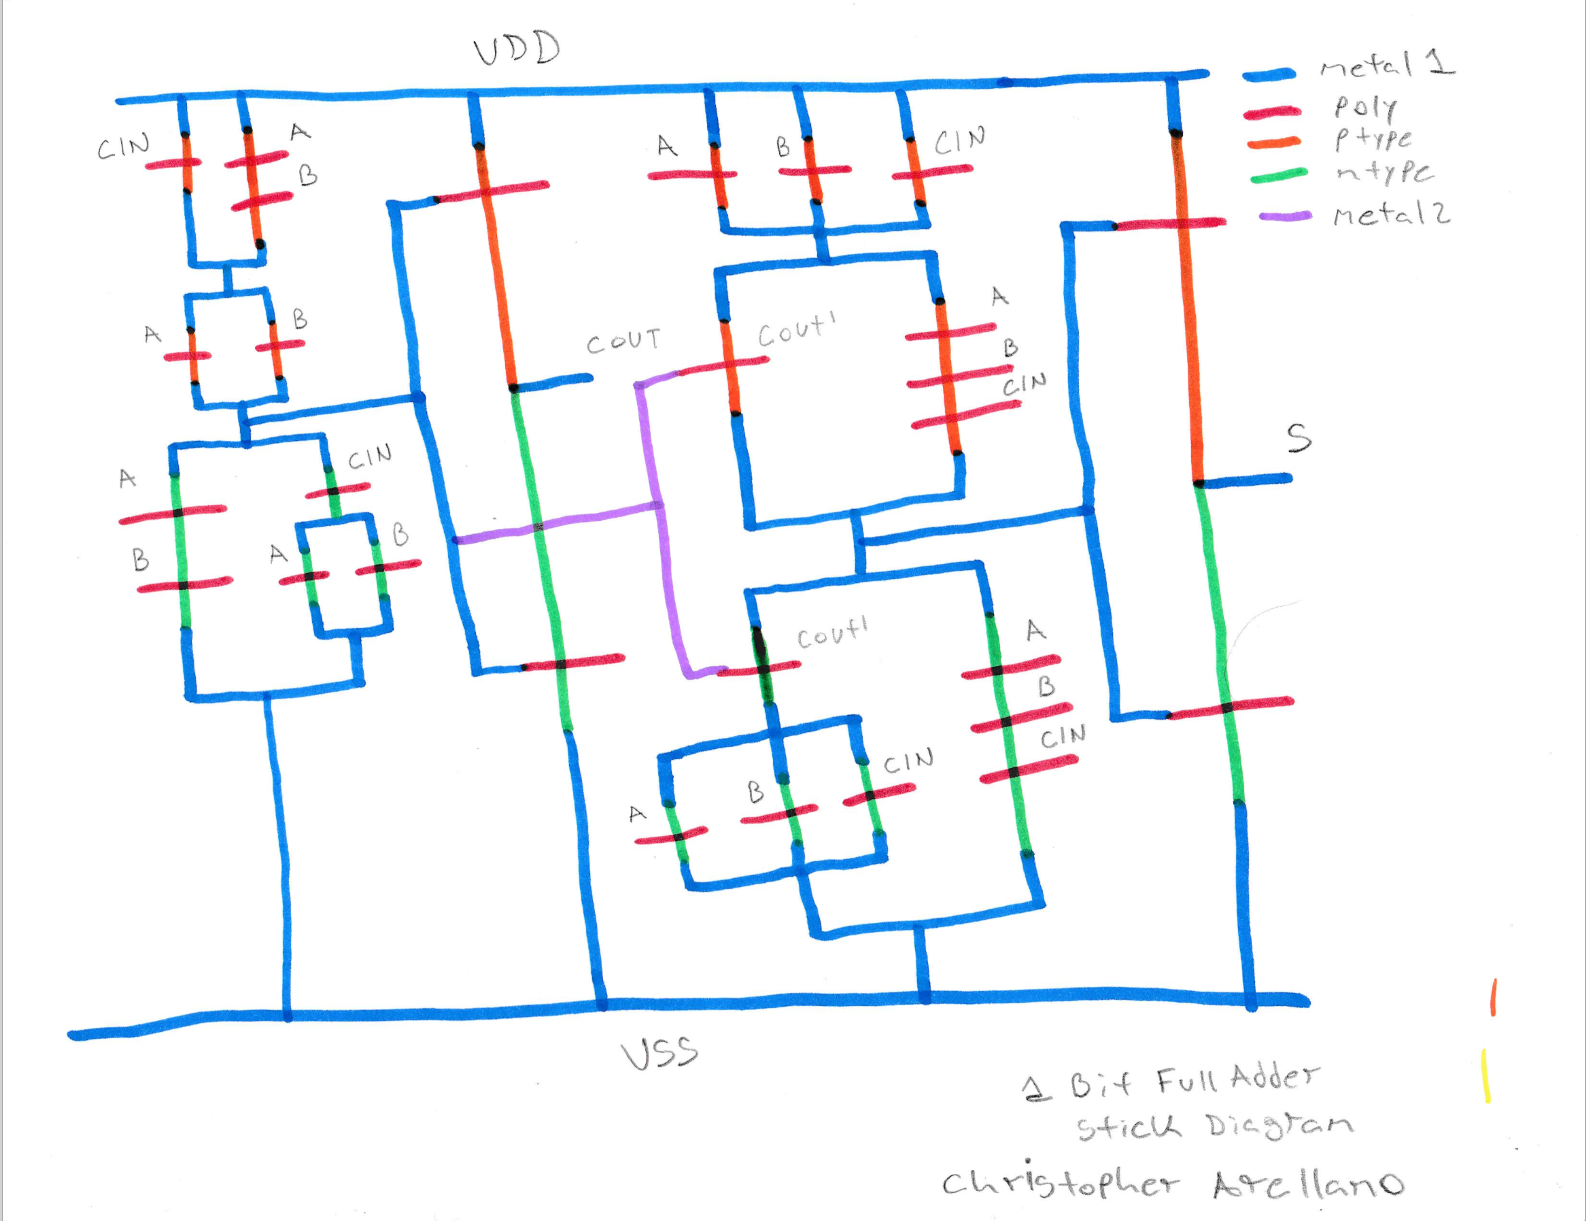 VDD
metal 1
poly
ptype
ntype
metal 2
CIN
A
B
A
B
A
B
CIN
A
B
COUT
A
B
CIN
Cout'
A
B
CIN
A
B
CIN
Cout'
A
B
CIN
A
B
CIN
S
VSS
1 Bit Full Adder
Stick Diagram
Christopher Arellano